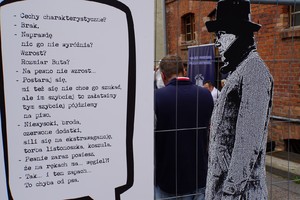 - Cechy charakterystyczne?
- Brak.
- Naprawdę
nic go nie wyróżnia?
Wzrost?
Rozmiar Buta?
- Na pewno nie wzrost...
- Postaraj się,
mi też się nie chce go szukać,
ale im szybciej to załatwimy
tym szybciej pójdziemy
na piwo.
- Niewysoki, broda,
czerwone dodatki,
sili się na ekstrawagancję,
torba listonoszka, koszula.
- Pewnie zaraz powiesz,
że na rękach ma... węgiel?!
- Tak... i ten zapach...
To chyba od psa.